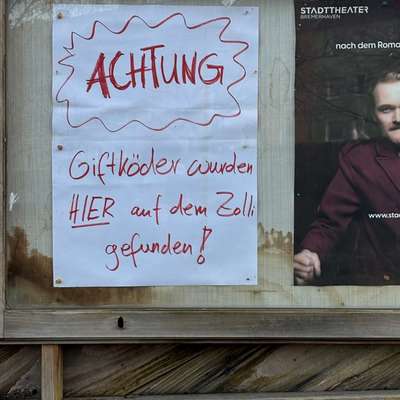 ACHTUNG
Giftköder wurden
HIER auf dem Zolli
gefunden!
STADTTHEATER
BREMERHAVEN
nach dem Roma
www.sta